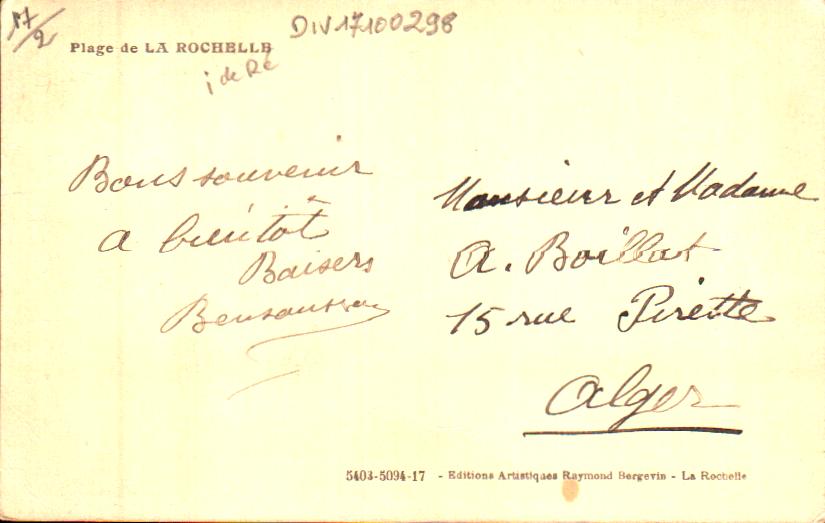 17/2
DIV17100298
Plage de LA ROCHELLE
i de Ré
Bons souvenir
a bientôt
Baisers
Bensoussan
Monsieur et Madame
A. Boillat
15 rue Pirette
Alger
5403-5094-17 - Editions Artistiques Raymond Bergevin - La Rochelle